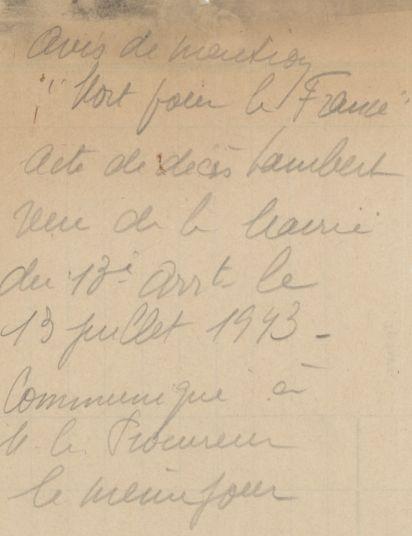 Avis de mention
"Mort pour la France"
acte de décès Lambert
venu de la Mairie
du 13e Arrt le
13 juillet 1943 -
Communiqué à
M. le Procureur
le même jour